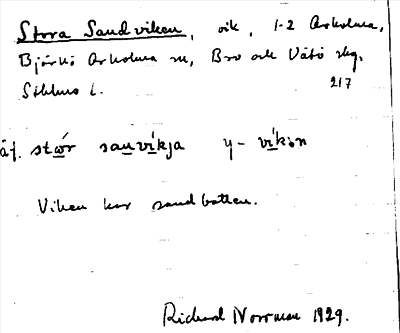 Stora Sandviken, vik, 1-2 Arholma,
Björkö Arholma sn, Bro och Vätö skg,
Sthlms l. 217
äf. stɷr sanvikja y- vikən
Viken har sandbotten.
Rickard Norrman 1929.